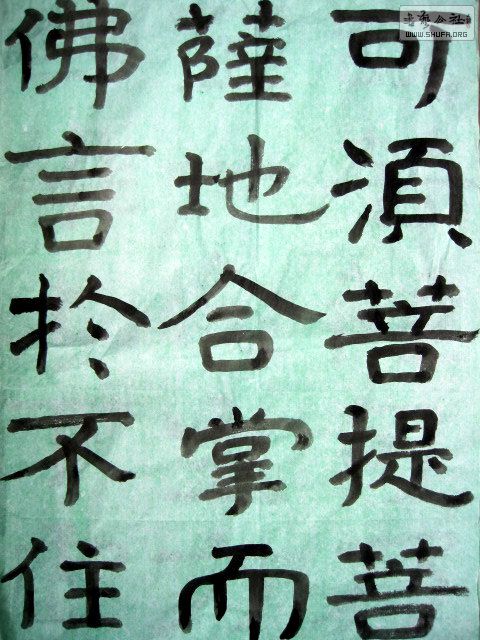 可須菩提菩
薩地合掌而
佛言於不住
WWW.SHUFA.ORG